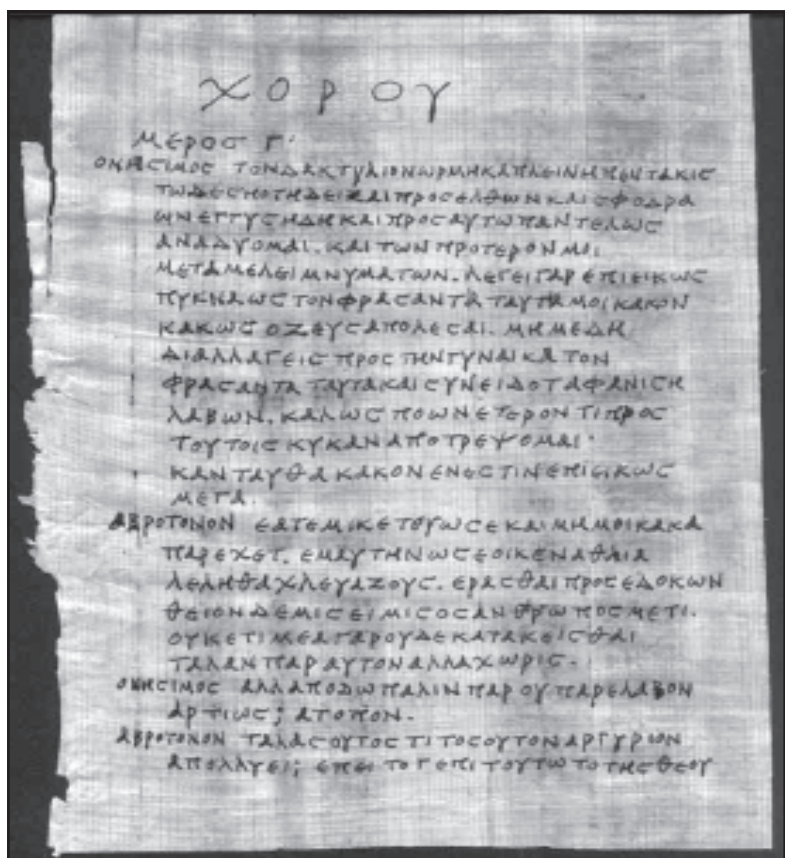 ΧΟΡΟΥ
ΜΕΡΟΣ Γ'
ΟΝΗϹΙΜΟϹ ΤΟΝΔΑΚΤΥΛΙΟΝΩΡΜΗΚΑΠΛΕΙΝΗΠΕΝΤΑΚΙϹ
ΤΩΔΕϹΠΟΤΗΔΕΙΞΑΙΠΡΟϹΕΛΘΩΝΚΑΙϹΦΟΔΡΑ
ΩΝΕΓΓΥϹΗΔΗΚΑΙΠΡΟϹΑΥΤΩΠΑΝΤΕΛΩϹ
ΑΝΑΔΥΟΜΑΙ. ΚΑΙΤΩΝΠΡΟΤΕΡΟΝΜΟΙ
ΜΕΤΑΜΕΛΕΙΜΝΥΜΑΤΩΝ. ΛΕΓΕΙΓΑΡΕΠΙΕΙΚΩϹ
ΠΥΚΝΑΩϹΤΟΝΦΡΑϹΑΝΤΑΤΑΥΤΑΜΟΙΚΑΚΟΝ
ΚΑΚΩϹΟΖΕΥϹΑΠΟΛΕϹΑΙ. ΜΗΜΕΔΗ
ΔΙΑΛΛΑΓΕΙϹΠΡΟϹΤΗΝΓΥΝΑΙΚΑΤΟΝ
ΦΡΑϹΑΝΤΑΤΑΥΤΑΚΑΙϹΥΝΕΙΔΟΤΑΦΑΝΙϹΗ
ΛΑΒΩΝ. ΚΑΛΩϹΠΟΩΝΕΤΕΡΟΝΤΙΠΡΟϹ
ΤΟΥΤΟΙϹΚΥΚΑΝΑΠΟΤΡΕΨΟΜΑΙ·
ΚΑΝΤΑΥΘΑΚΑΚΟΝΕΝΕϹΤΙΝΕΠΙΕΙΚΩϹ
ΜΕΓΑ.
ΑΒΡΟΤΟΝΟΝ ΕΑΤΕΜΙΚΕΤΕΥΩϹΕΚΑΙΜΗΜΟΙΚΑΚΑ
ΠΑΡΕΧΕΤ. ΕΜΑΥΤΗΝΩϹΕΟΙΚΕΝΑΘΛΙΑ
ΛΕΛΗΘΑΧΛΕΥΑΖΟΥϹ. ΕΡΑϹΘΑΙΠΡΟϹΕΔΟΚΩΝ
ΘΕΙΟΝΔΕΜΙϹΕΙΜΙϹΟϹΑΝΘΡΩΠΟϹΜΕΤΙ.
ΟΥΚΕΤΙΜΕΑΓΑΡΟΥΔΕΚΑΤΑΚΕΙϹΘΑΙ
ΤΑΛΑΝΠΑΡΑΥΤΟΝΑΛΛΑΧΩΡΙϹ.
ΟΝΗϹΙΜΟϹ ΑΛΛΑΠΟΔΩΠΑΛΙΝΠΑΡΟΥΠΑΡΕΛΑΒΟΝ
ΑΡΤΙΩϹ; ΑΤΟΠΟΝ.
ΑΒΡΟΤΟΝΟΝ ΤΑΛΑϹΟΥΤΟϹΤΙΤΟϹΟΥΤΟΝΑΡΓΥΡΙΟΝ
ΑΠΟΛΛΥΕΙ; ΕΠΕΙΤΟΓΕΠΙΤΟΥΤΩΤΟΤΗϹΘΕΟΥ